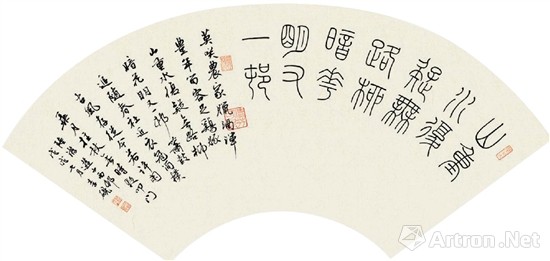 山重
水復
疑無
路柳
暗花
明又
一邨
莫笑農家臘酒渾
豐年留客足雞豚
山重水複疑無路柳
暗花明又一邨簫鼓
追隨春社近衣冠簡樸
古風存從今若許閒
乘月拄杖無時夜叩門
Artron.Net